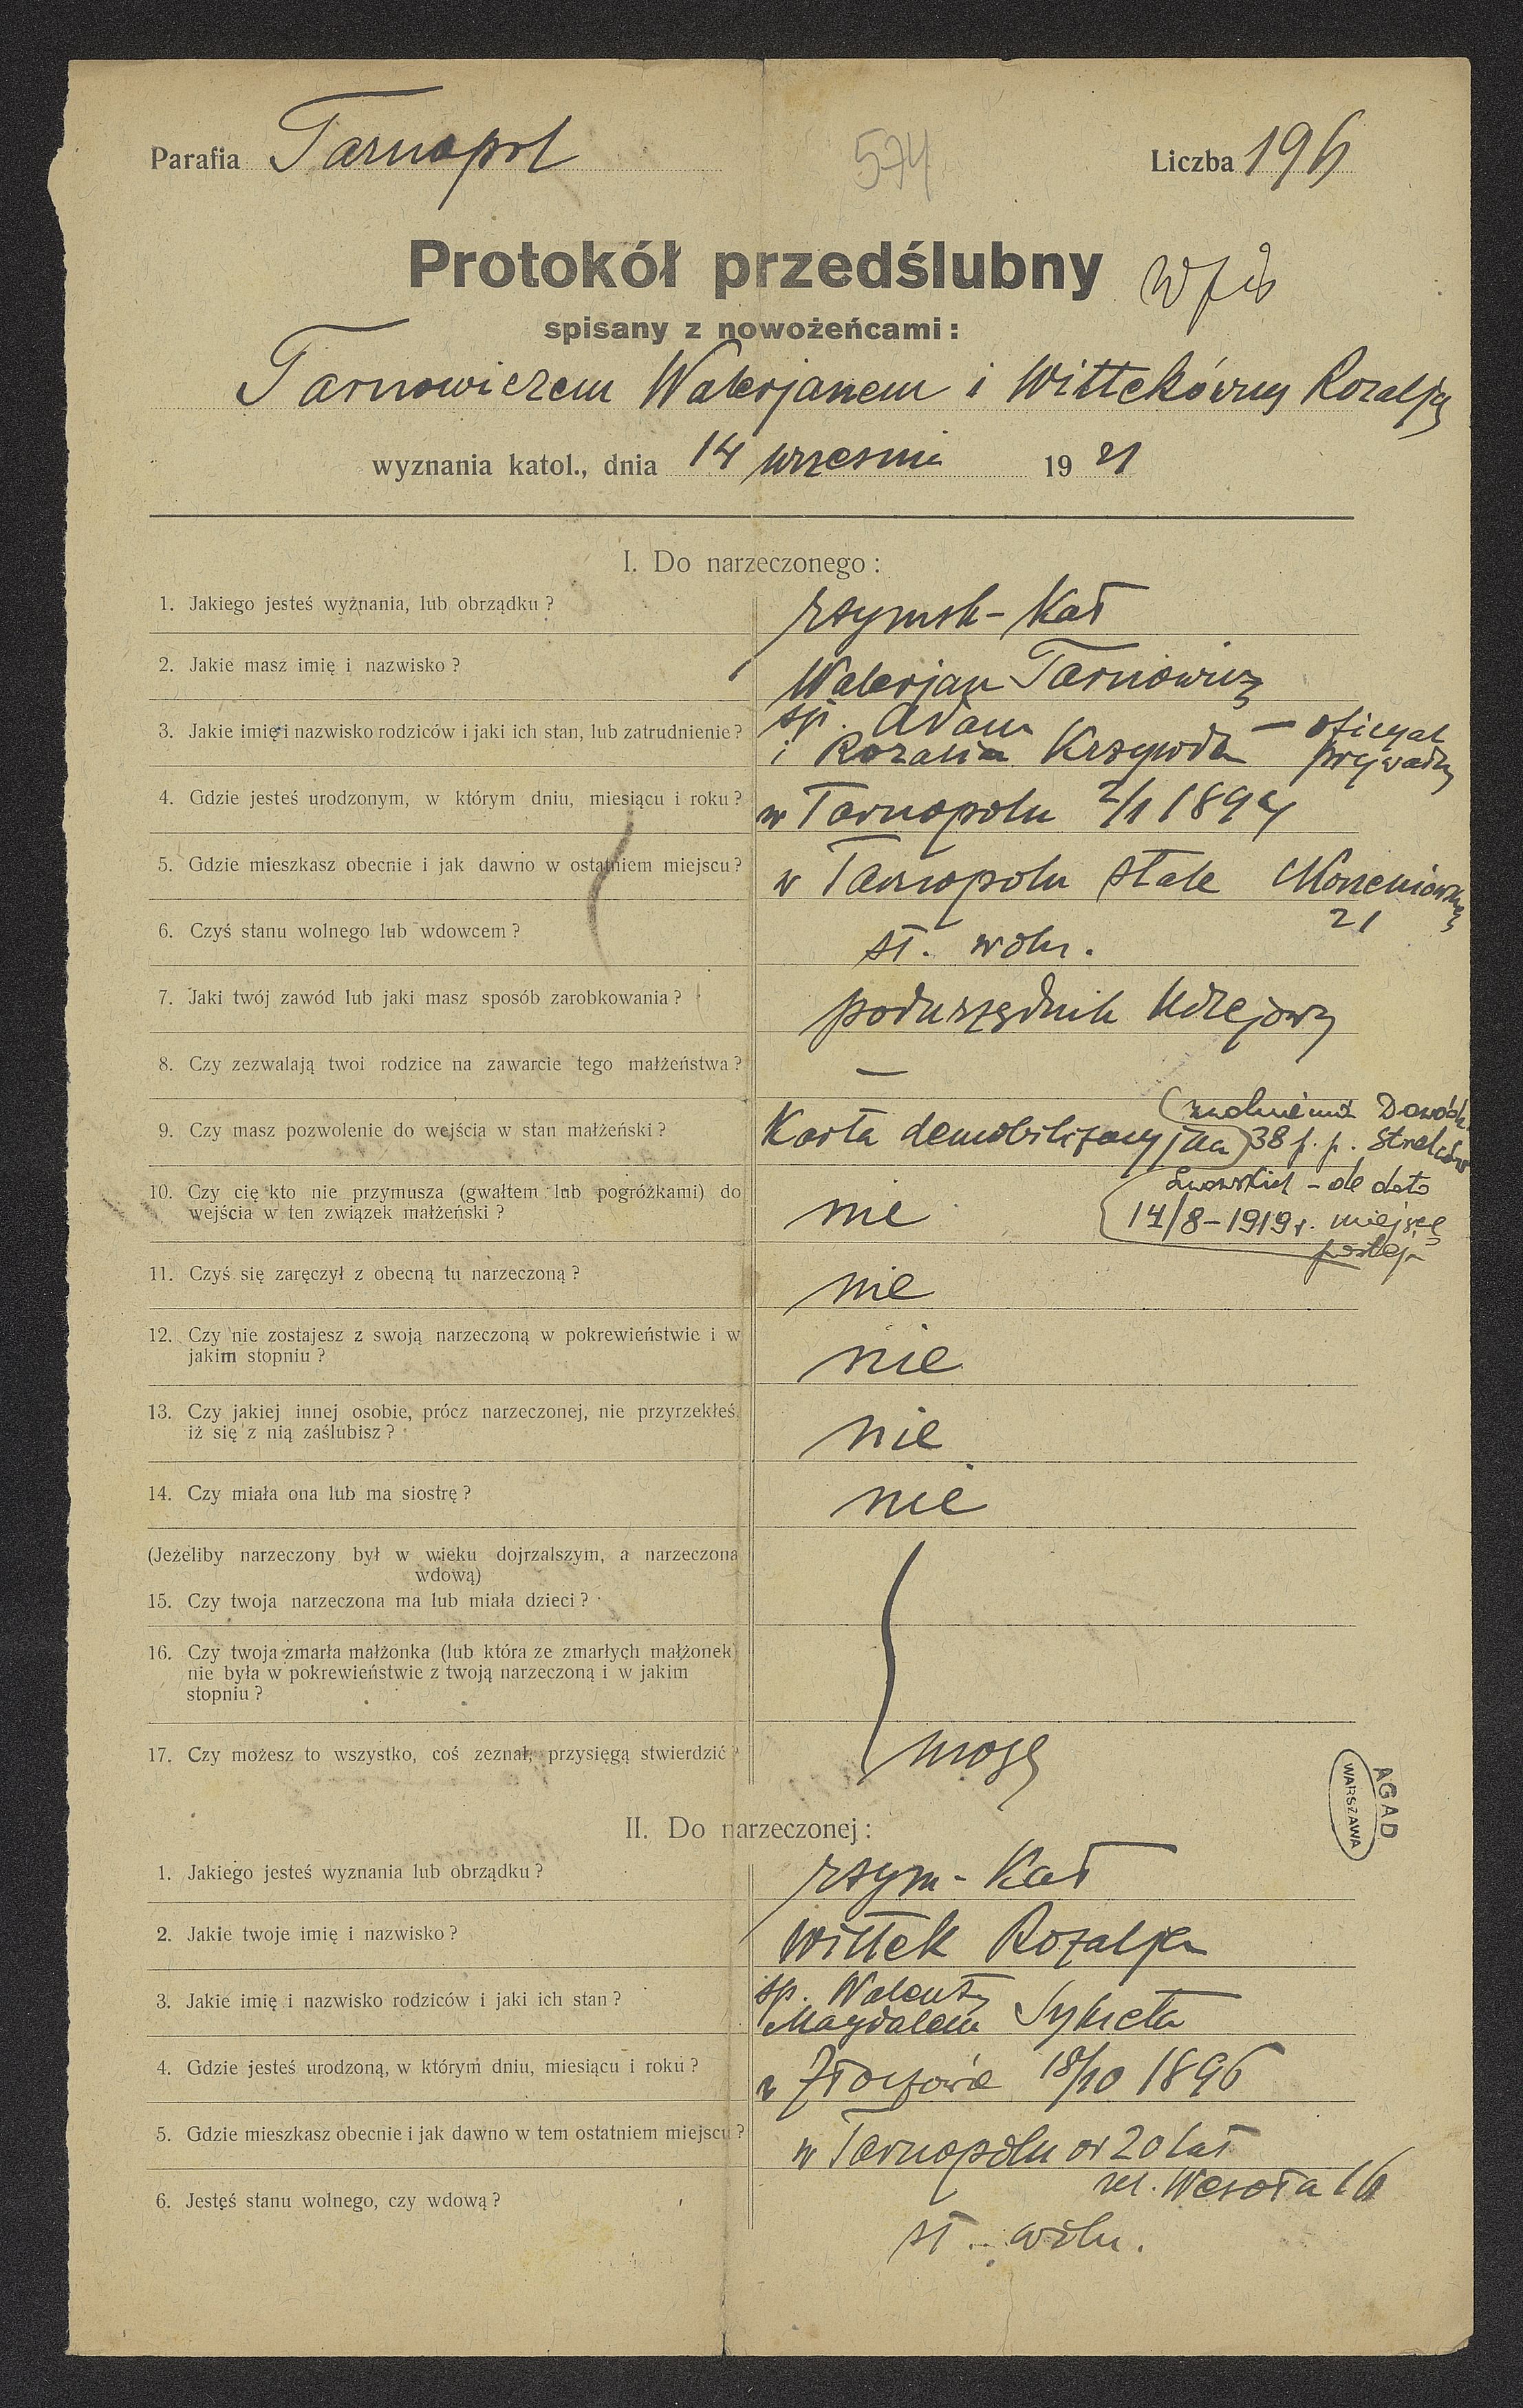 Parafia Tarnopol 574 Liczba 196
Protokół przedślubny
spisany z nowożeńcami:
Tarnowiczem Walerjanem i Wittekówny Rozalją
wyznania katol., dnia 14 wrzesnia 19 21
I. Do narzeczonego:
1. Jakiego jesteś wyznania, lub obrządku? rzymsk-kat
2. Jakie masz imię i nazwisko? Walerjan Tarnowicz
3. Jakie imię i nazwisko rodziców i jaki ich stan, lub zatrudnienie? sp. Adam
i Rozalia Krzywda – oficyal
prywatny
4. Gdzie jesteś urodzonym, w którym dniu, miesiącu i roku? w Tarnopolu 2/1 1894
5. Gdzie mieszkasz obecnie i jak dawno w ostatniem miejscu? w Tarnopolu stale
21
6. Czyś stanu wolnego lub wdowcem? st. woln.
7. Jaki twój zawód lub jaki masz sposób zarobkowania? podurzędnik kolejowy
8. Czy zezwalają twoi rodzice na zawarcie tego małżeństwa? —
9. Czy masz pozwolenie do wejścia w stan małżeński? Karta demobilizacyjna
(zwolnienia Dowódz.
38 p. p. Strelców
Lwowskich – de dato
14/8–1919 r. miejsce
10. Czy cię kto nie przymusza (gwałtem lub pogróżkami) do
wejścia w ten związek małżeński? nie
11. Czyś się zaręczył z obecną tu narzeczoną? nie
12. Czy nie zostajesz z swoją narzeczoną w pokrewieństwie i w
jakim stopniu? nie
13. Czy jakiej innej osobie, prócz narzeczonej, nie przyrzekłeś,
iż się z nią zaślubisz? nie
14. Czy miała ona lub ma siostrę? nie
(Jeżeliby narzeczony był w wieku dojrzalszym, a narzeczona
wdową)
15. Czy twoja narzeczona ma lub miała dzieci?
16. Czy twoja zmarła małżonka (lub która ze zmarłych małżonek)
nie była w pokrewieństwie z twoją narzeczoną i w jakim
stopniu?
17. Czy możesz to wszystko, coś zeznał, przysięgą stwierdzić? mogę
AGAD
WARSZAWA
II. Do narzeczonej:
1. Jakiego jesteś wyznania lub obrządku? rzym-kat
2. Jakie twoje imię i nazwisko? Wittek Rozalja
3. Jakie imię i nazwisko rodziców i jaki ich stan? sp. Walenty
Magdalena Sykieta
4. Gdzie jesteś urodzoną, w którym dniu, miesiącu i roku? w Złoczowie 18/10 1896
5. Gdzie mieszkasz obecnie i jak dawno w tem ostatniem miejscu? w Tarnopolu od 20 lat
ul. Wesoła 16
6. Jesteś stanu wolnego, czy wdową? st. woln.